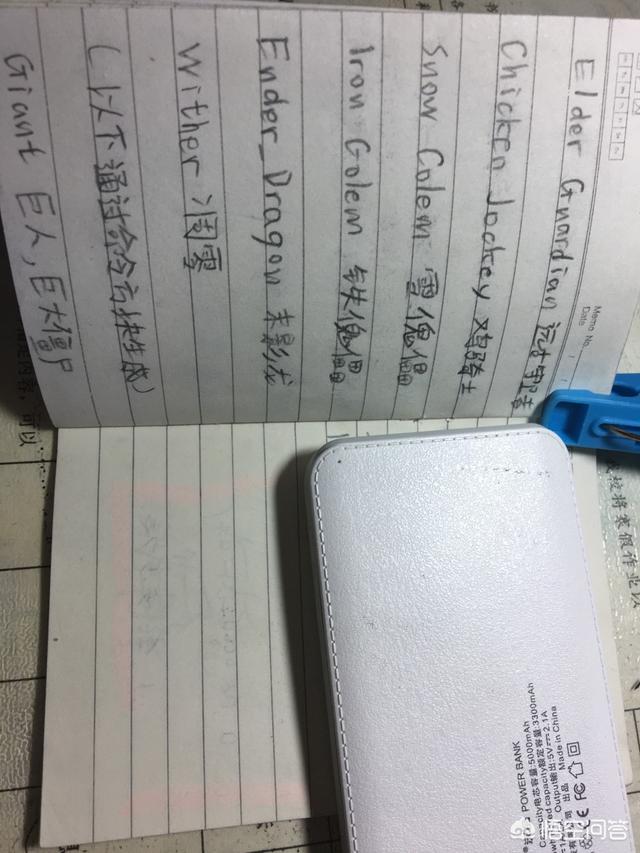 Memo No.
Date
Elder Guardian 远古守卫者
Chicken Jockey 鸡骑士
Snow Golem 雪傀儡
Iron Golem 铁傀儡
Ender_Dragon 末影龙
Wither 凋零
(以下通过命令方块生成)
Giant 巨人,巨大僵尸
POWER BANK
Capacity电芯容量:5000mAh
capacity额定容量:3300mAh
Output输出:5V⎓2.1A
出品 Made in China
CE FC
悟空问答